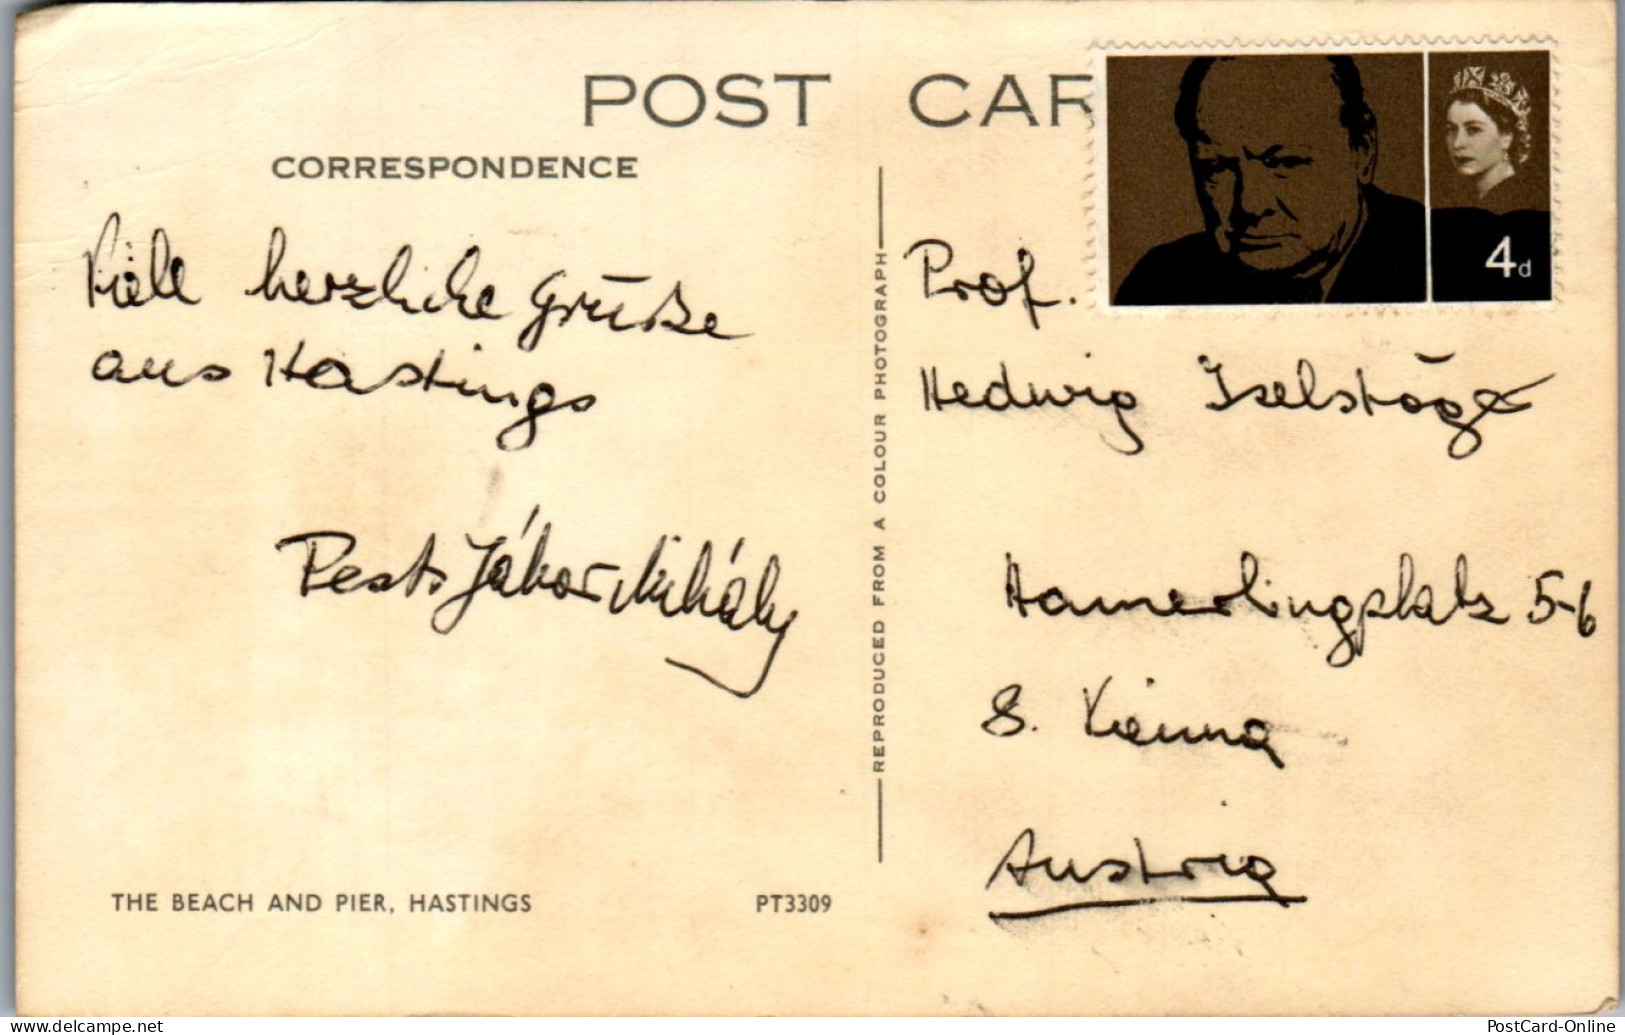 POST CAR
CORRESPONDENCE
4d
Viele herzliche Grüße
aus Hastings
REPRODUCED FROM A COLOUR PHOTOGRAPH
Prof.
Hedwig
Hamerlingplatz 5-6
8. Vienna
Austria
THE BEACH AND PIER, HASTINGS
PT3309
PostCard-Online
www.delcampe.net